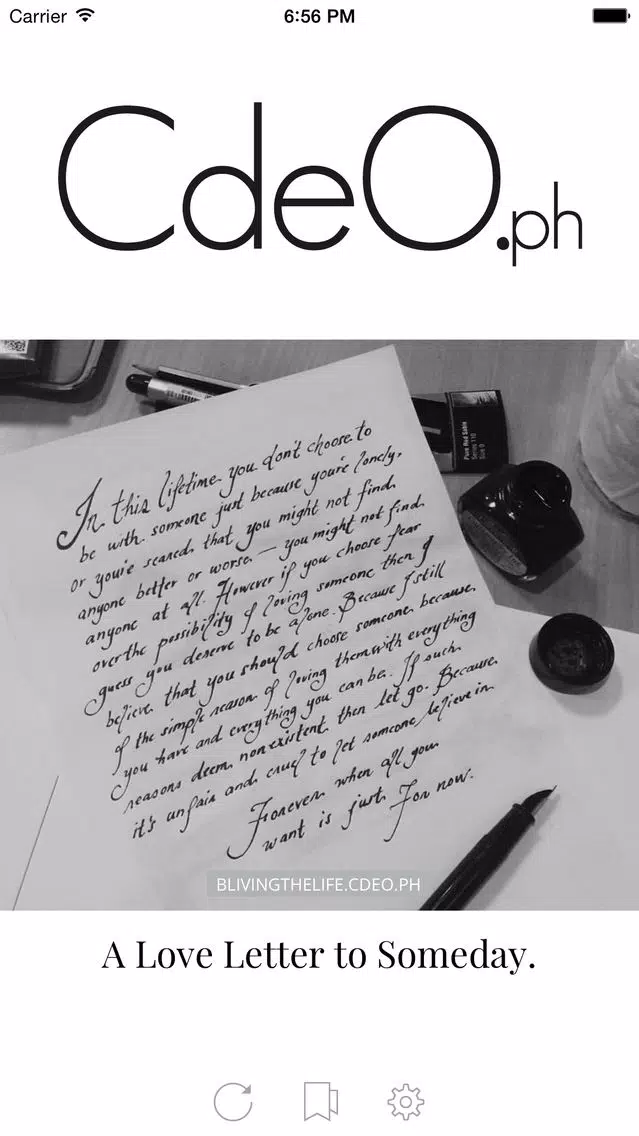 Carrier 6:56 PM
CdeO.ph
Pure Red Sable
Series 110
Size 0
In this lifetime you don't choose to
be with someone just because you're lonely,
or you're scared that you might not find
anyone better or worse — you might not find
anyone at all. However if you choose fear
over the possibility of loving someone then I
guess you deserve to be alone. Because I still
believe that you should choose someone because
of the simple reason of loving them with everything
you have and everything you can be. If such
reasons deem nonexistent then let go. Because
it's unfair and cruel to let someone believe in
Forever when all you
want is just For now.
BLIVINGTHELIFE.CDEO.PH
A Love Letter to Someday.